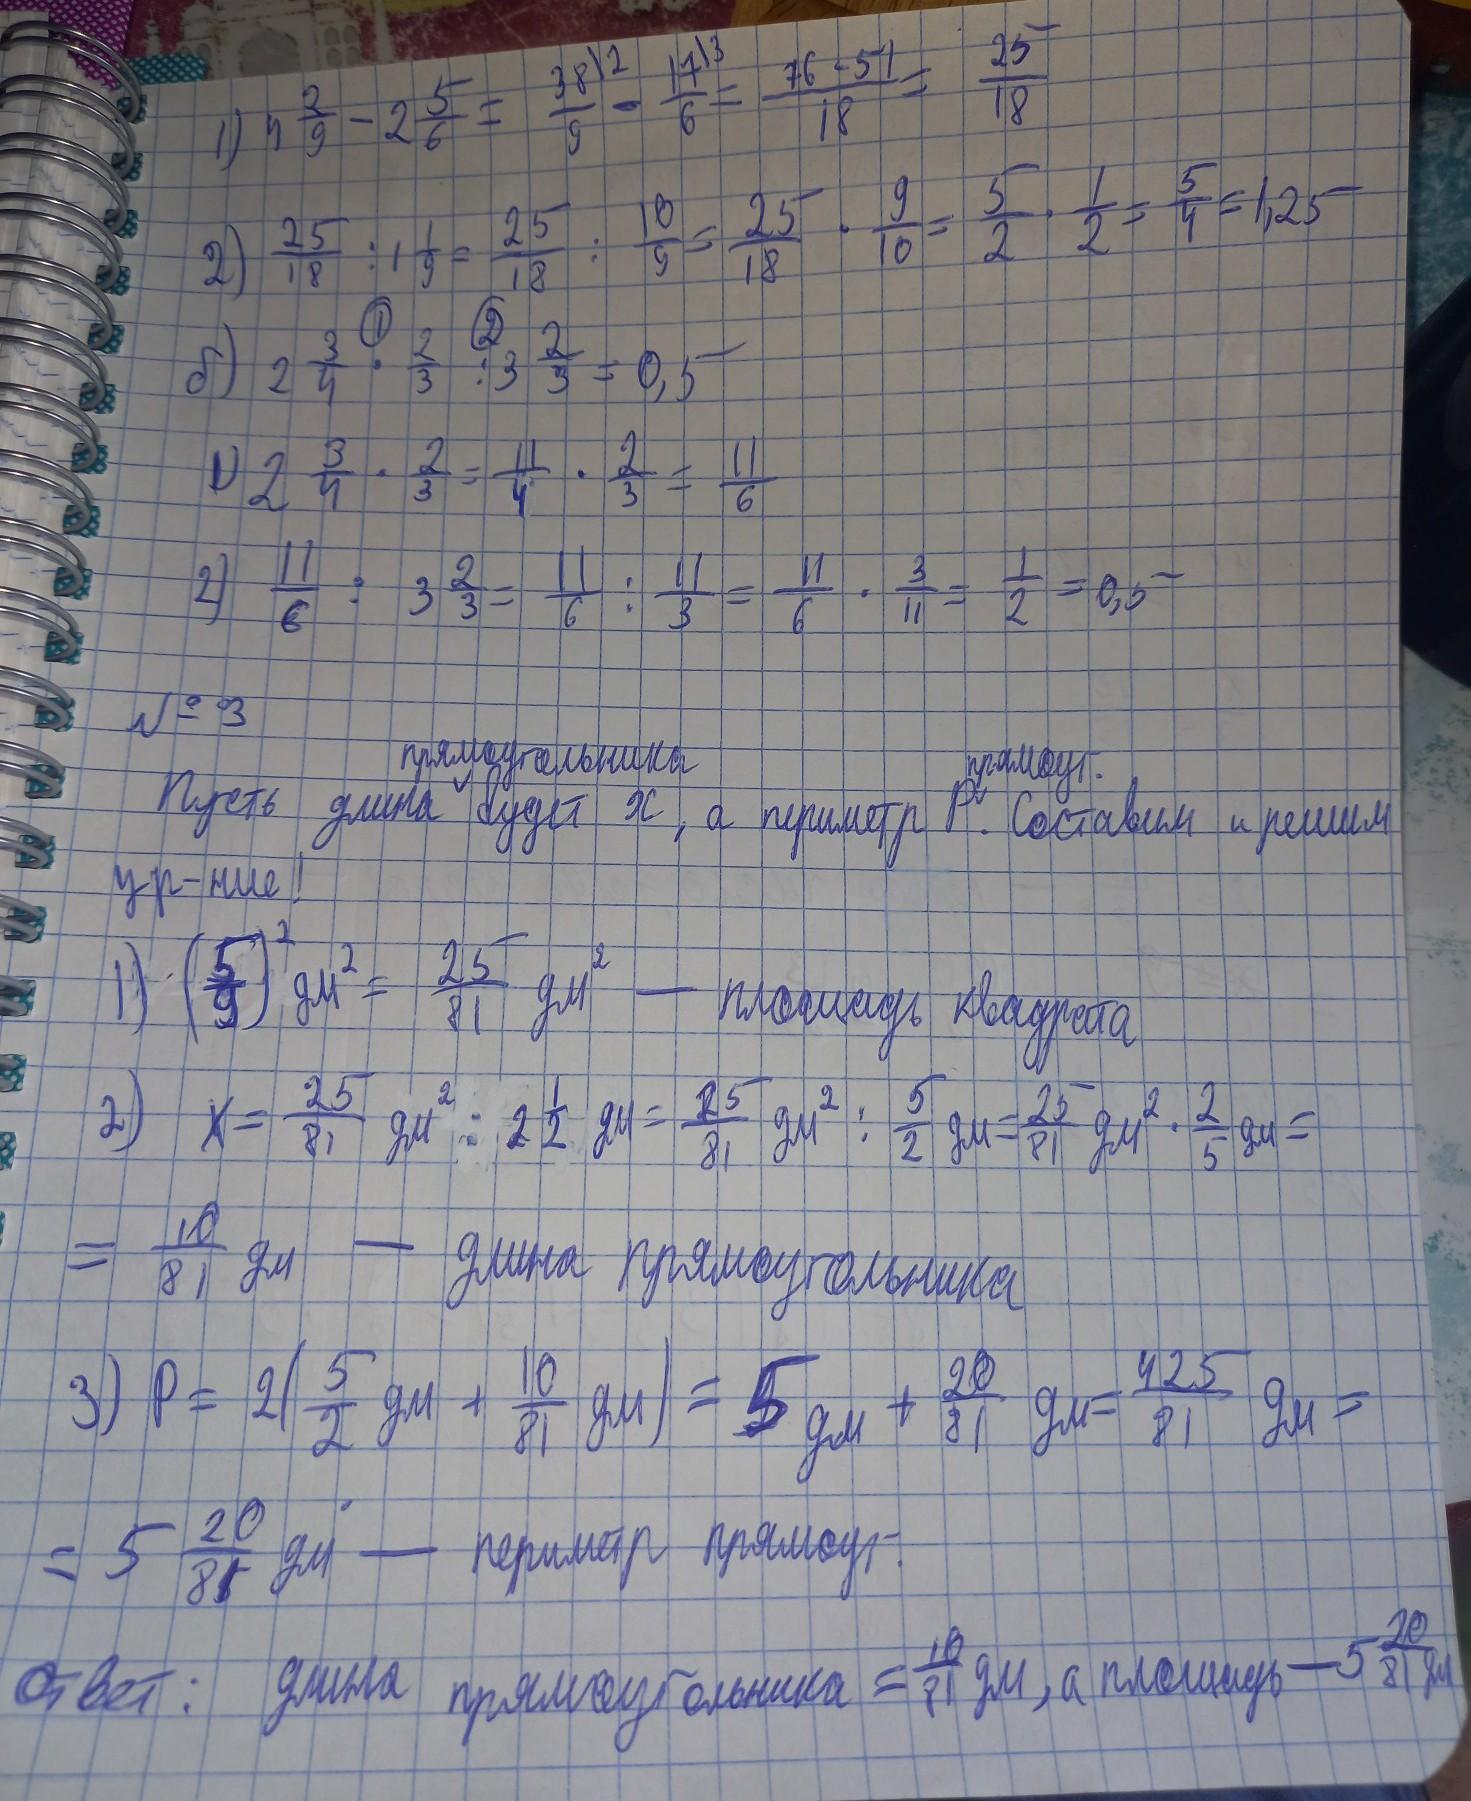 1) 4 2/9 - 2 5/6 = 38\2/9 - 17\3/6 = 76-51/18 = 25/18
2) 25/18 : 1 1/9 = 25/18 : 10/9 = 25/18 · 9/10 = 5/2 · 1/2 = 5/4 = 1,25
① ②
б) 2 3/4 · 2/3 : 3 2/3 = 0,5
1) 2 3/4 · 2/3 = 11/4 · 2/3 = 11/6
2) 11/6 : 3 2/3 = 11/6 : 11/3 = 11/6 · 3/11 = 1/2 = 0,5
№ 3
прямоугольника прямоуг.
Пусть длина будет x, а периметр P. Составим и решим
ур-ние!
1) (5/9)² дм² = 25/81 дм² — площадь квадрата
2) x = 25/81 дм² : 2 1/2 дм = 25/81 дм² : 5/2 дм = 25/81 дм² · 2/5 дм =
= 10/81 дм — длина прямоугольника
3) P = 2(5/2 дм + 10/81 дм) = 5 дм + 20/81 дм = 425/81 дм =
= 5 20/81 дм — периметр прямоуг.
Ответ: длина прямоугольника = 10/81 дм, а площадь — 5 20/81 дм